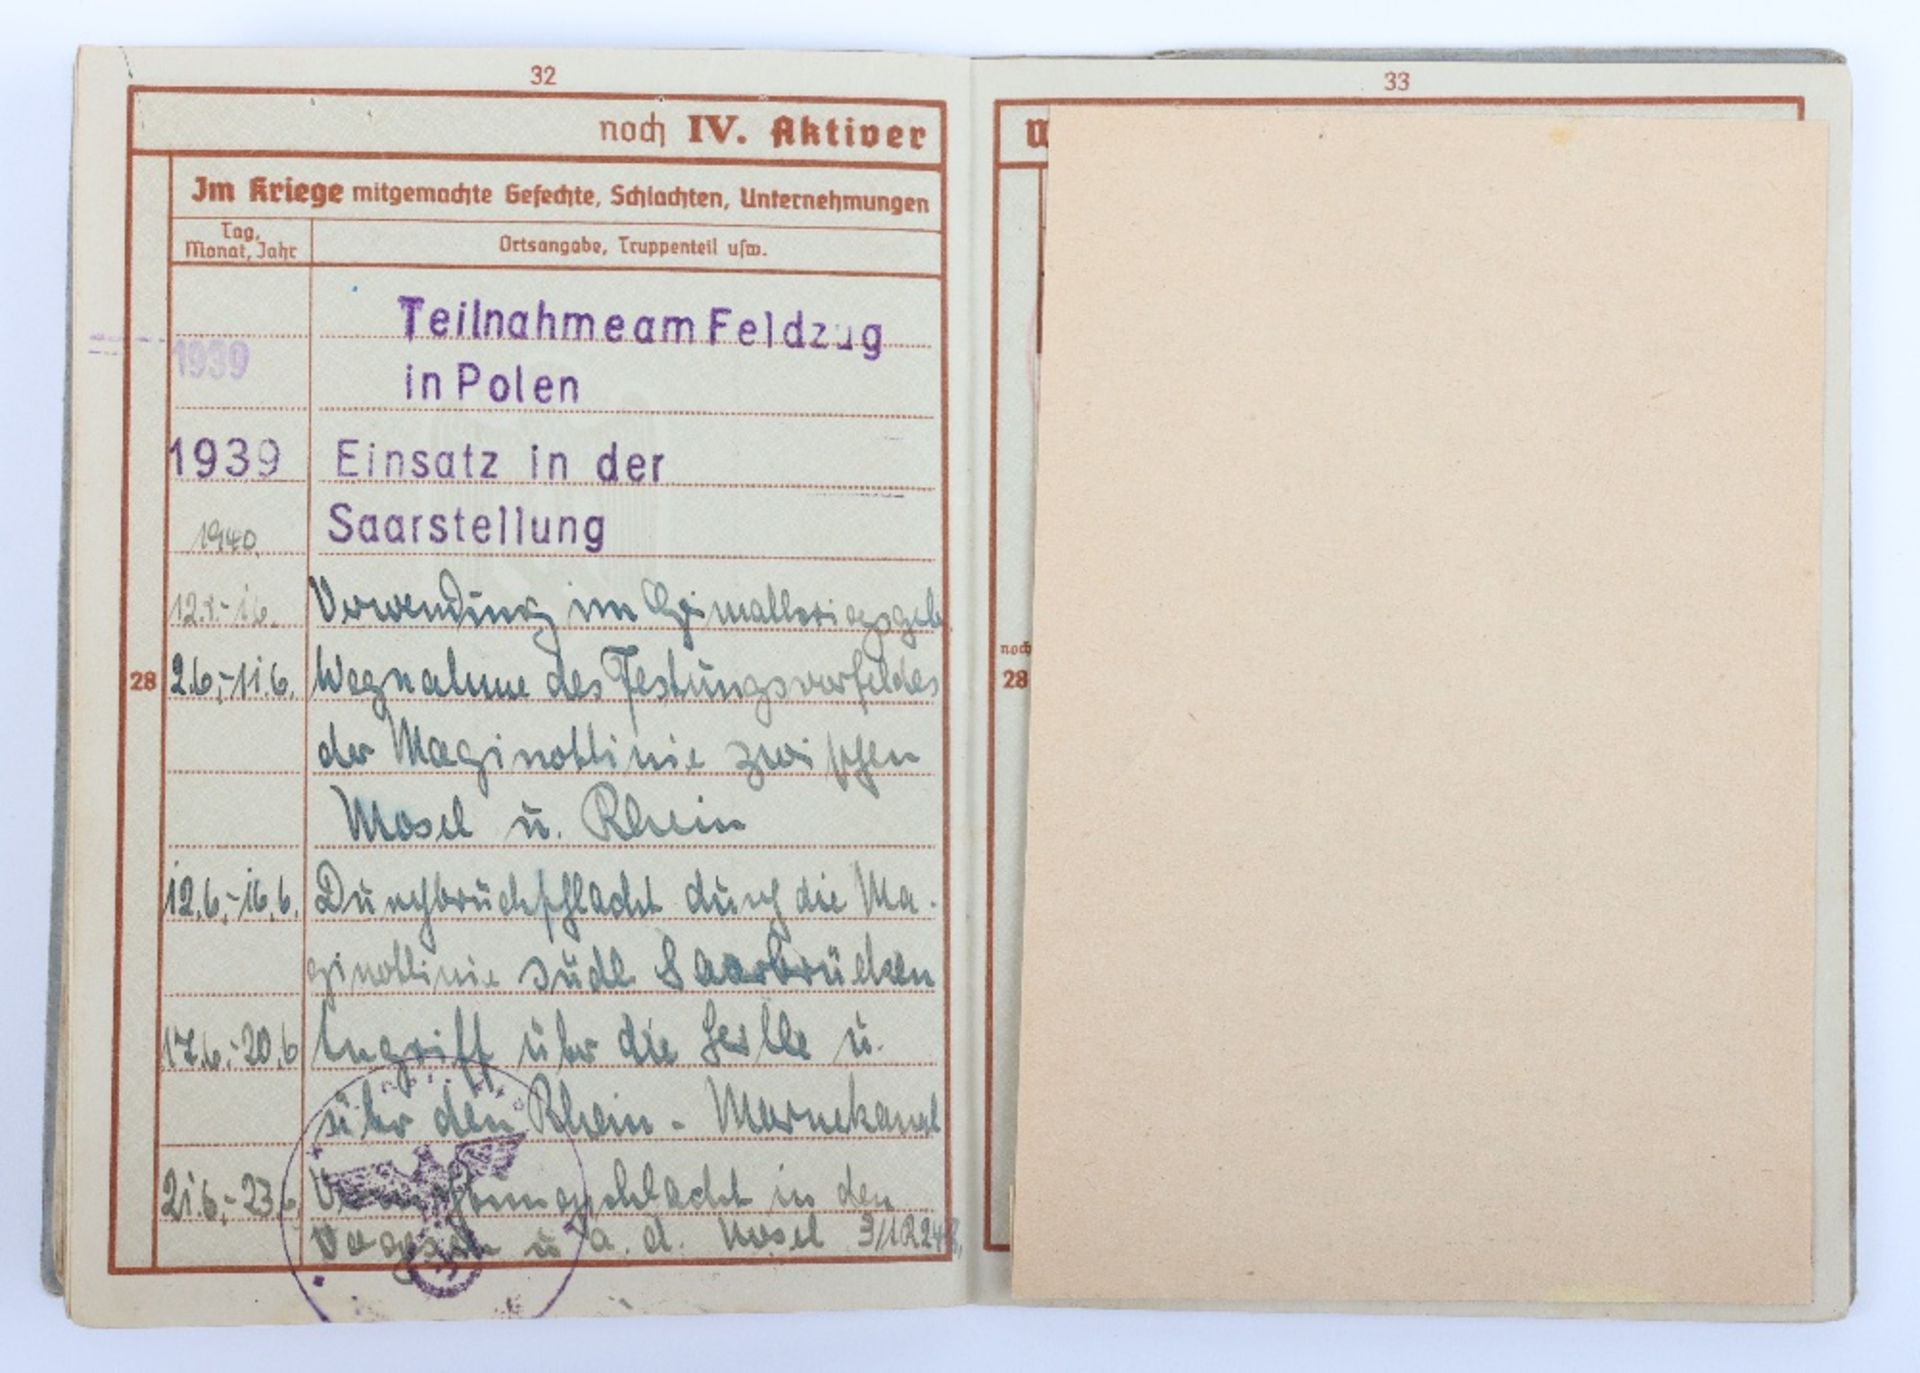 32
noch IV. Aktiver
Im Kriege mitgemachte Gefechte, Schlachten, Unternehmungen
Tag, Monat, Jahr
Ortsangabe, Truppenteil usw.
Teilnahme am Feldzug
1939 in Polen
1939 Einsatz in der
1940. Saarstellung
Verwendung im
28 2.6.-11.6. Wegnahme des Festungsvorfeldes
der Maginotlinie zwischen
Mosel u. Rhein
12.6.-16.6. Durchbruchschlacht durch die Ma-
ginotlinie südl. Saarbrücken
17.6.-20.6 Angriff über die Seille u.
über den Rhein-Marnekanal
21.6.-23.6. in den
Vogesen u. a. d. Mosel
33
noch
28